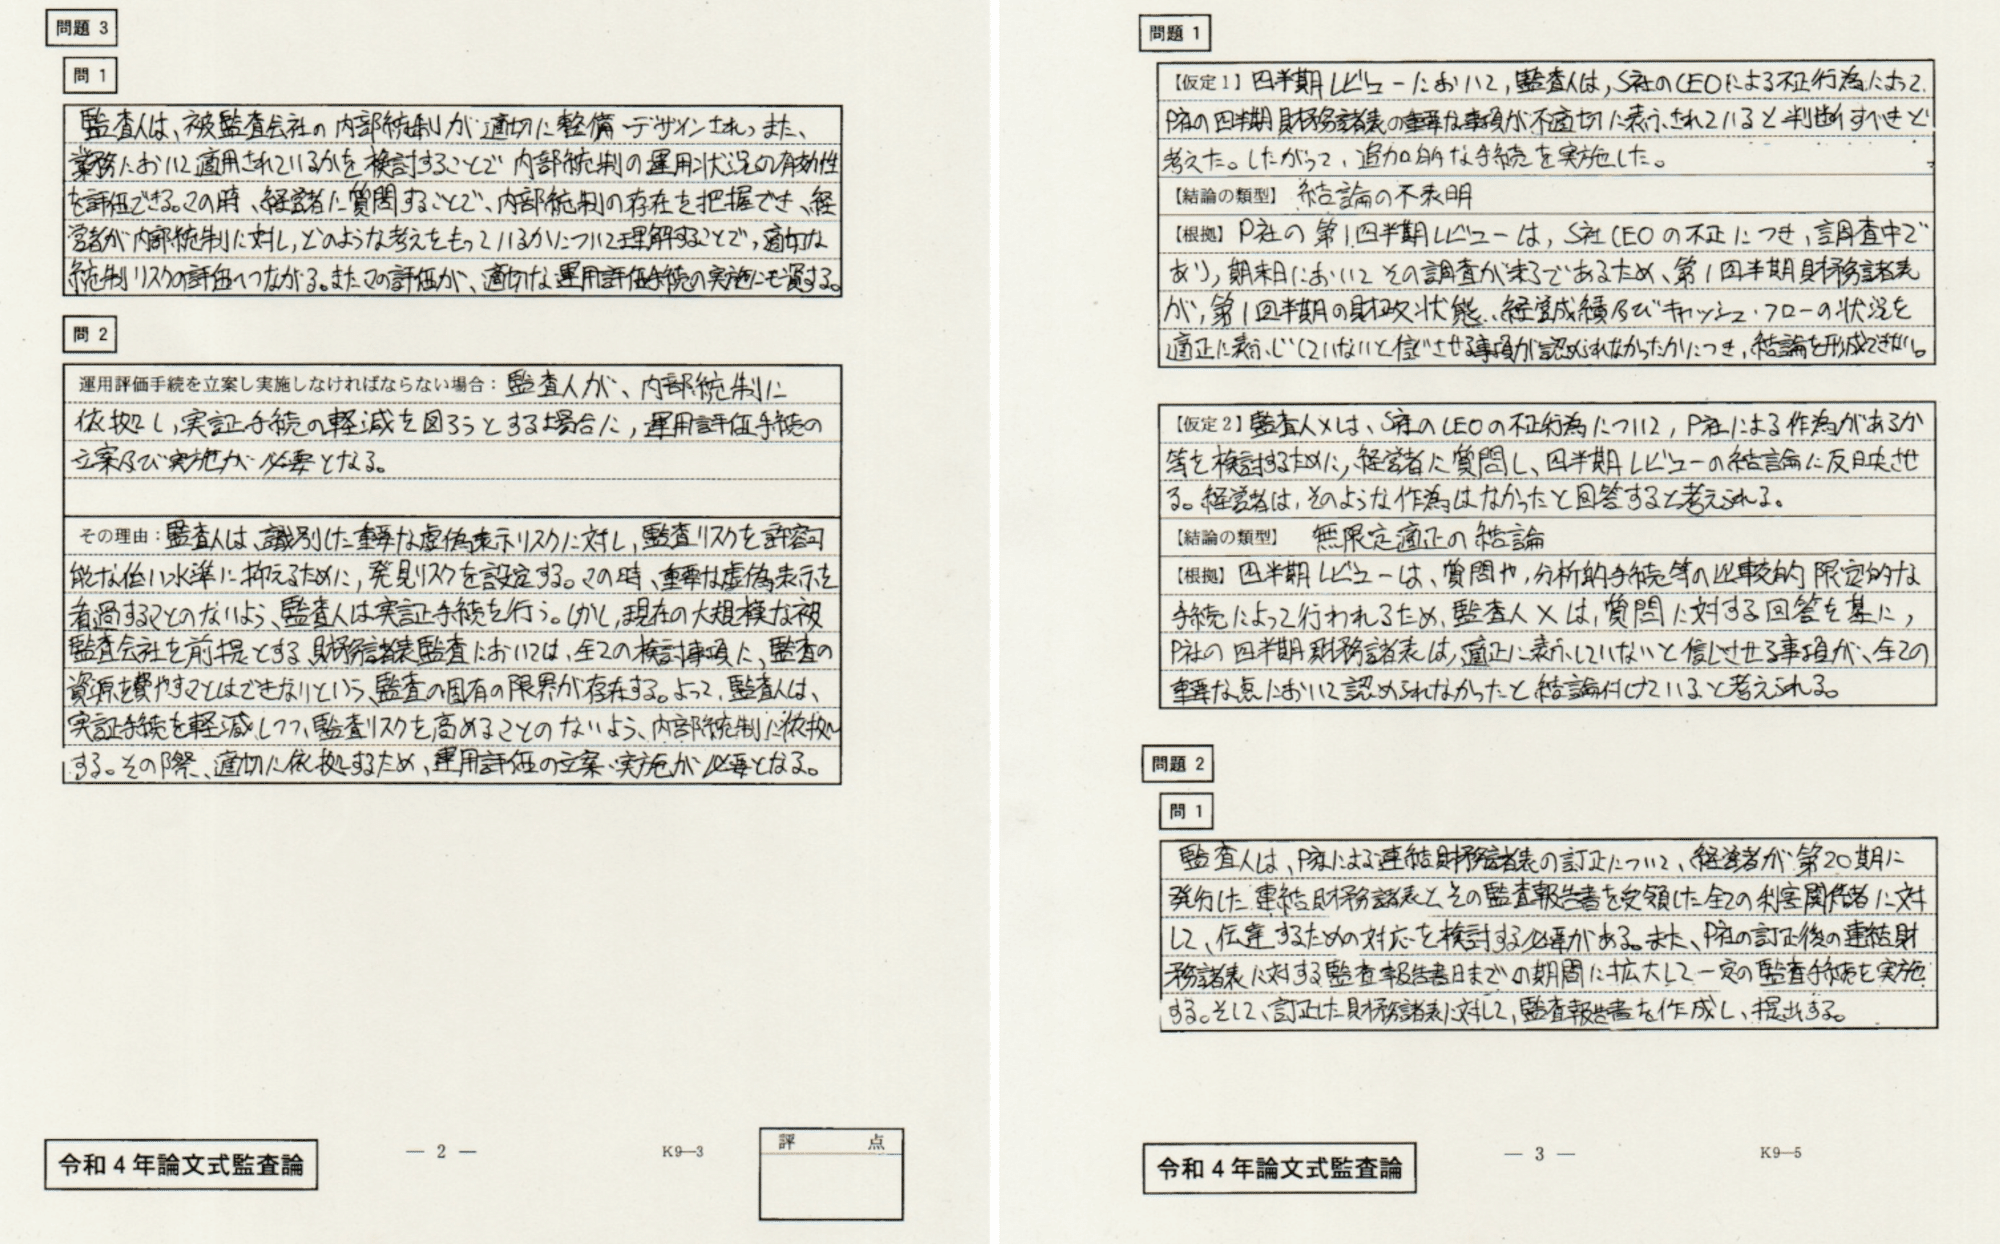 問題 3
問 1
監査人は、被監査会社の内部統制が適切に整備・デザインされ、また、
業務において適用されているかを検討することで内部統制の運用状況の有効性
を評価できる。この時、経営者に質問することで、内部統制の存在を把握でき、経
営者が内部統制に対し、どのような考えをもっているかについて理解することで、適切な
統制リスクの評価へつながる。またこの評価が、適切な運用評価手続の実施にも資する。
問 2
運用評価手続を立案し実施しなければならない場合：監査人が、内部統制に
依拠し、実証手続の軽減を図ろうとする場合に、運用評価手続の
立案及び実施が必要となる。
その理由：監査人は、識別した重要な虚偽表示リスクに対し、監査リスクを許容可
能な低い水準に抑えるために、発見リスクを設定する。この時、重要な虚偽表示を
看過することのないよう、監査人は実証手続を行う。しかし、現在の大規模な被
監査会社を前提とする財務諸表監査においては、全ての検討事項に、監査の
資源を費やすことはできないという、監査の固有の限界が存在する。よって、監査人は、
実証手続を軽減しつつ、監査リスクを高めることのないよう、内部統制に依拠
する。その際、適切に依拠するため、運用評価の立案・実施が必要となる。
令和 4 年論文式監査論
― 2 ―
K9―3
評 点
問題 1
【仮定 1】四半期レビューにおいて、監査人は、S社のCEOによる不正行為によって、
P社の四半期財務諸表の重要な事項が不適切に表示されていると判断すべきと
考えた。したがって、追加的な手続を実施した。
【結論の類型】 結論の不表明
【根拠】P社の第1四半期レビューは、S社CEOの不正につき、調査中で
あり、期末日においてその調査が未了であるため、第1四半期財務諸表
が、第1四半期の財政状態、経営成績及びキャッシュ・フローの状況を
適正に表示していないと信じさせる事項が認められなかったかにつき、結論を形成できない。
【仮定 2】監査人Xは、S社のCEOの不正行為について、P社による作為があるか
等を検討するために、経営者に質問し、四半期レビューの結論に反映させ
る。経営者は、そのような作為はなかったと回答すると考えられる。
【結論の類型】 無限定適正の結論
【根拠】四半期レビューは、質問や、分析的手続等の比較的限定的な
手続によって行われるため、監査人Xは、質問に対する回答を基に、
P社の四半期財務諸表は、適正に表示していないと信じさせる事項が、全ての
重要な点において認められなかったと結論付けていると考えられる。
問題 2
問 1
監査人は、P社による連結財務諸表の訂正について、経営者が第20期に
発行した連結財務諸表と、その監査報告書を受領した全ての利害関係者に対
して、伝達するための対応を検討する必要がある。また、P社の訂正後の連結財
務諸表に対する監査報告書日までの期間に拡大して一定の監査手続を実施
する。そして、訂正した財務諸表に対して、監査報告書を作成し、提出する。
令和 4 年論文式監査論
― 3 ―
K9―5